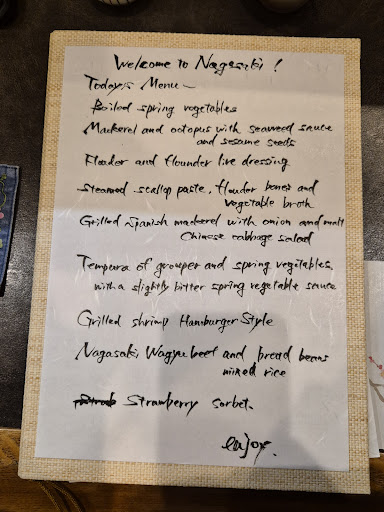 Welcome to Nagasaki!
Today's Menu ~
Boiled spring vegetables
Mackerel and octopus with seaweed sauce
and sesame seeds
Floader and flounder live dressing
Steamed scallop paste, flouder bones and
vegetable broth
Grilled Spanish mackerel with onion and malt
Chinese cabbage salad
Tempura of grouper and spring vegetables,
with a slightly bitter spring vegetable sauce
Grilled shrimp Hamburger Style
Nagasaki Wagyu beef and bread beans
mixed rice
Strawberry sorbet.
enjoy.